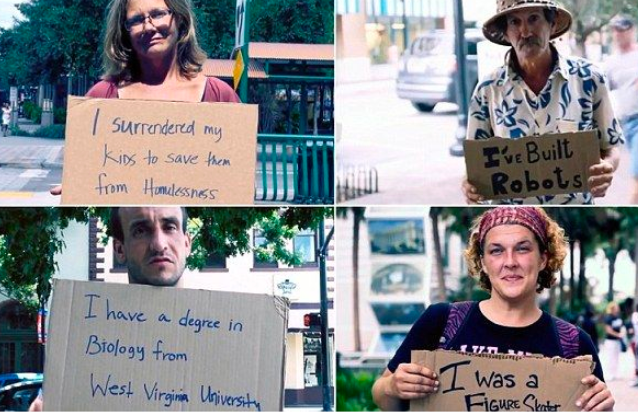 I surrendered my
Kids to save them
from Homelessness
I've Built
Robots
I have a degree in
Biology from
West Virginia University
I was a
FIGURE Skater